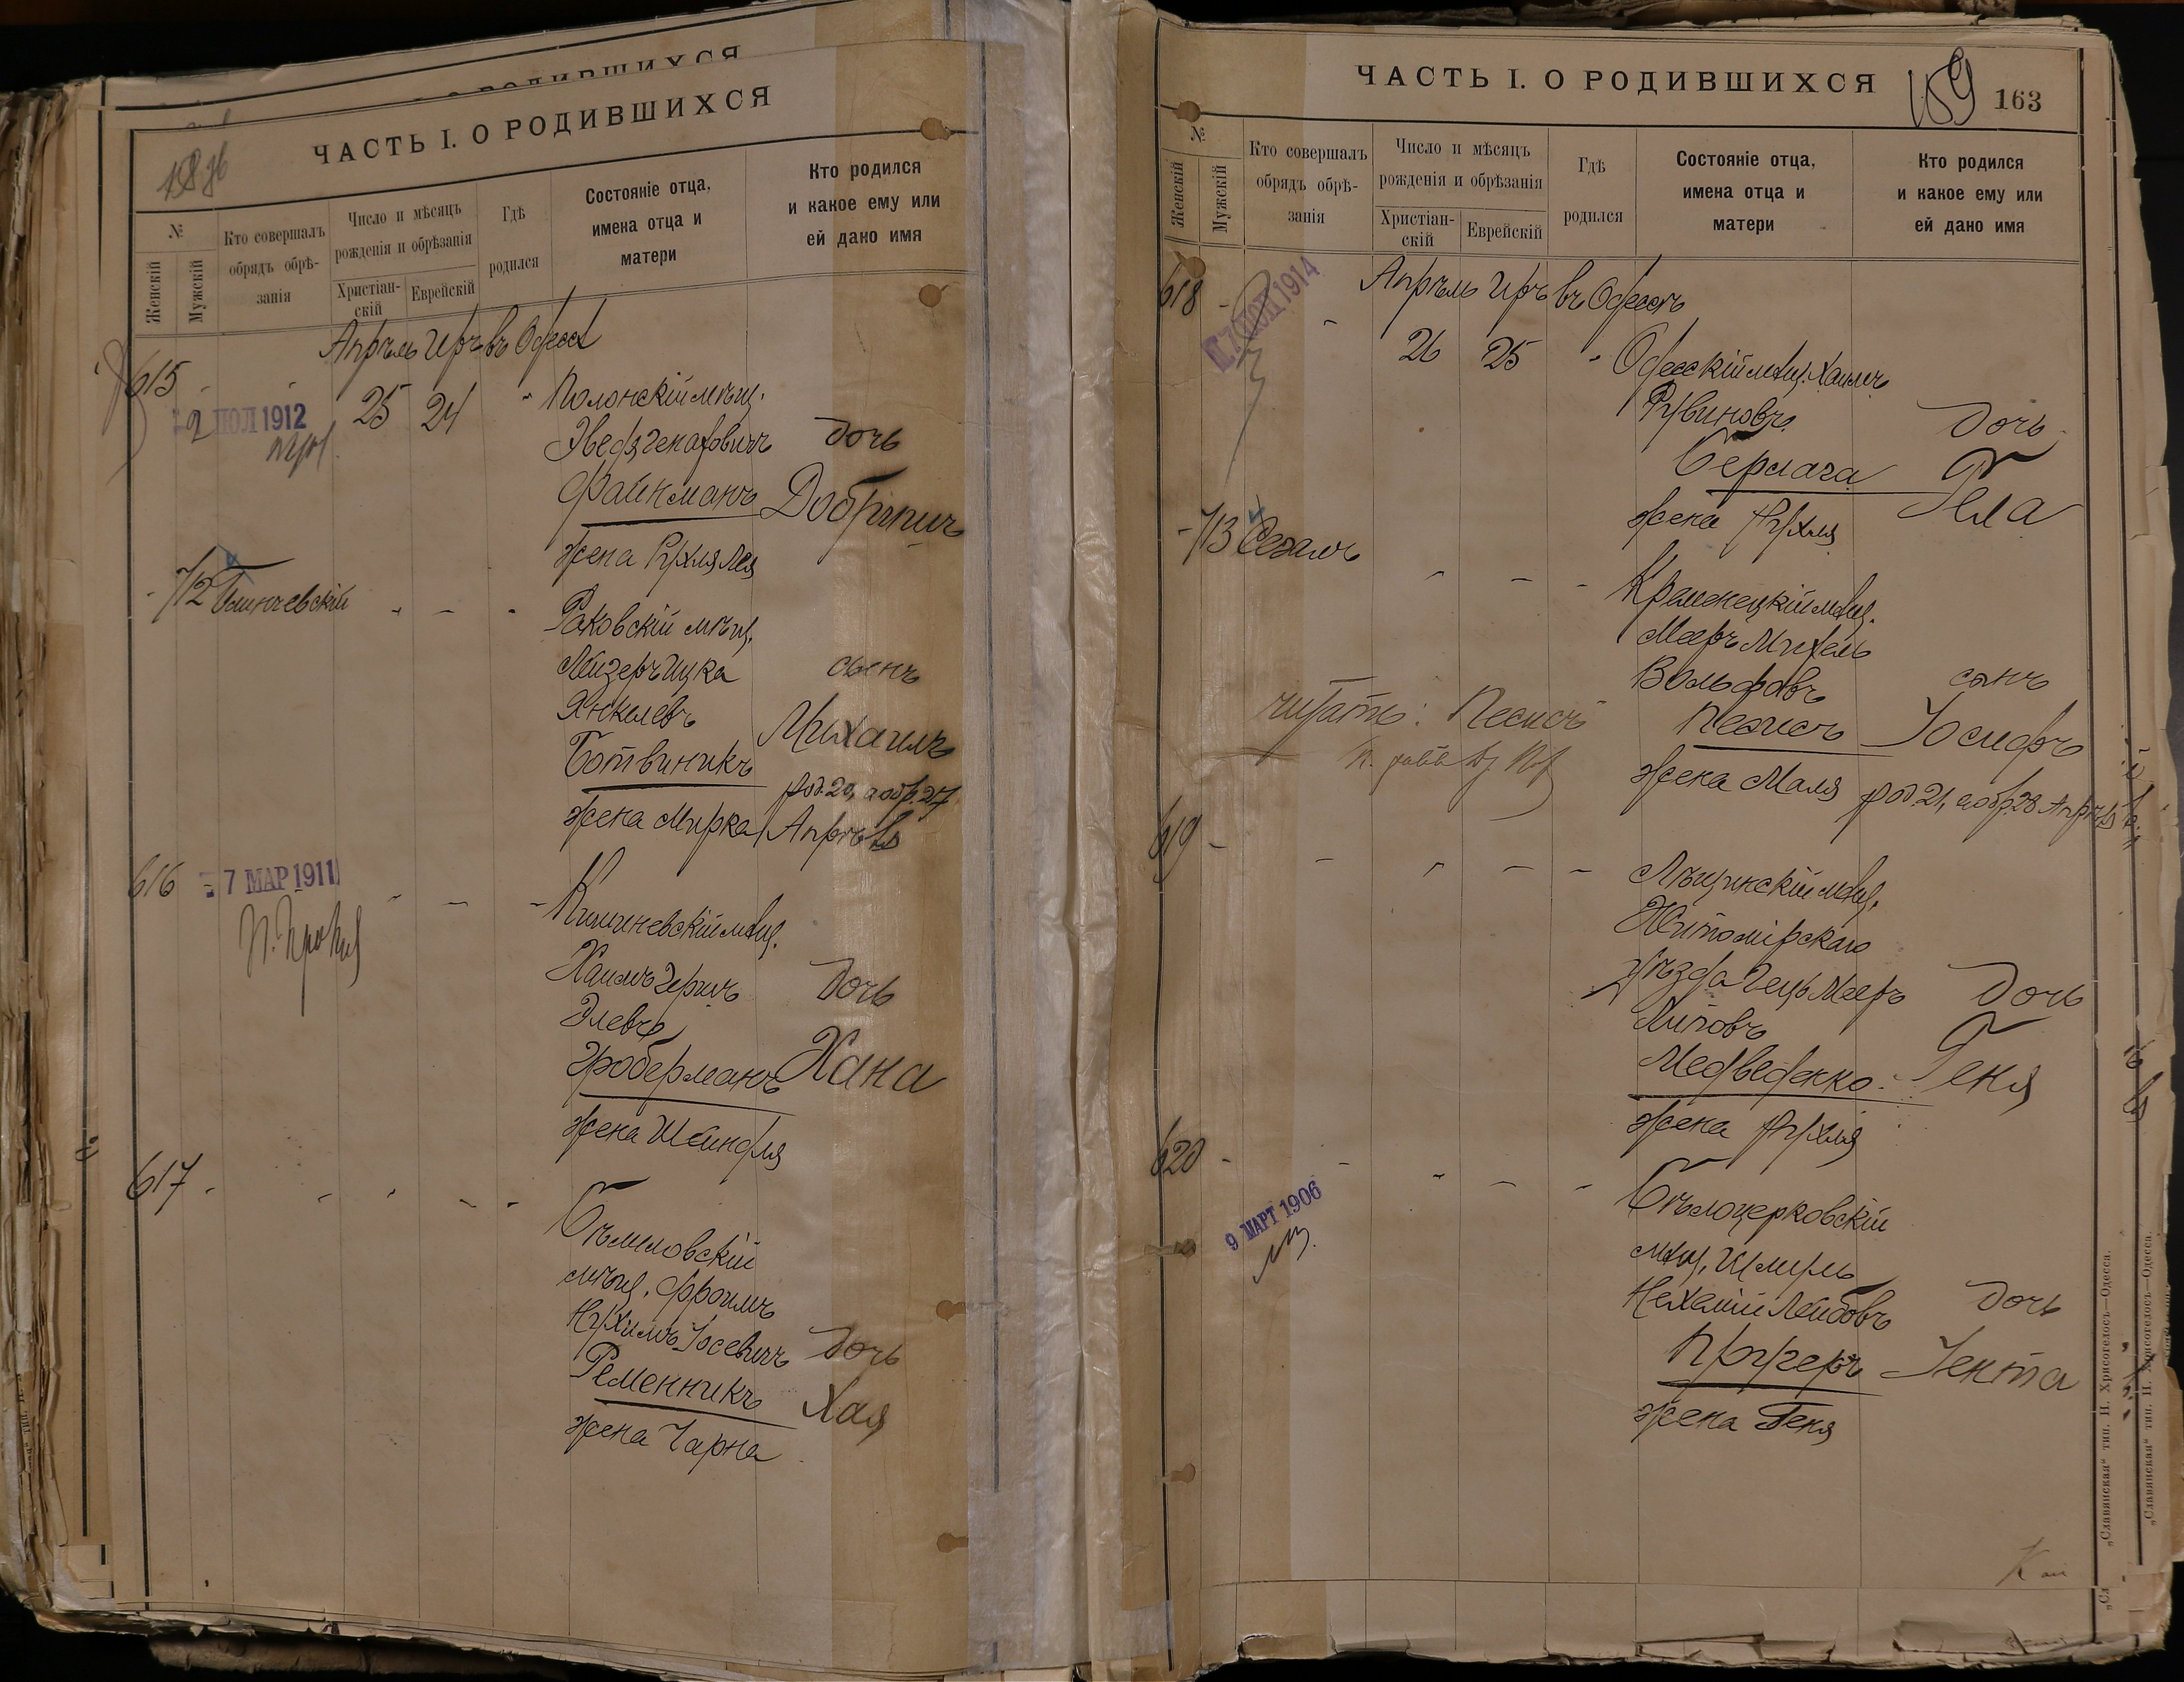 ЧАСТЬ I. О РОДИВШИХСЯ
№
Женскій
Мужскій
Кто совершалъ
обрядъ обрѣ-
занія
Число и мѣсяцъ
рожденія и обрѣзанія
Христіан-
скій
Еврейскій
Гдѣ
родился
Состояніе отца,
имена отца и
матери
Кто родился
и какое ему или
ей дано имя
Апрѣль Иръ въ Одессѣ
615 - 25 24 Полонскій мѣщ.
2 ІЮЛ 1912
дочь
Файнманъ
жена Рухля Лея
712 Раковскій мѣщ.
Лейзеръ Ицка сынъ
Янкелевъ Михаилъ
Ботвиникъ род. 20, а обр. 27
жена Мирка Апрѣля
616 - 7 МАР 1911
Кишиневскій мѣщ.
Хаимъ Герцъ дочь
Элевъ
Гроберманъ Хана
жена Шейндля
617 -
мѣщ. Фроимъ
Нухимъ Іосевичъ дочь
Ременникъ Хая
жена Чарна
ЧАСТЬ I. О РОДИВШИХСЯ
159
163
№
Женскій
Мужскій
Кто совершалъ
обрядъ обрѣ-
занія
Число и мѣсяцъ
рожденія и обрѣзанія
Христіан-
скій
Еврейскій
Гдѣ
родился
Состояніе отца,
имена отца и
матери
Кто родился
и какое ему или
ей дано имя
Апрѣль Иръ въ Одессѣ
618 - 26 25 Одесскій мѣщ. Хаимъ
1914
Рувиновъ дочь
Гела
жена Рухля
- 713 Сегалъ Кременецкій мѣщ.
Мееръ Михель
Вольфовъ сынъ
читать: Песисъ
Песисъ Іосифъ
жена Маля род. 21, а обр. 28 Апрѣля
619 - мѣщ.
Житомірскаго
уѣзда Гецъ Мееръ дочь
Липовъ
Медведенко Геня
жена Рухля
620 - Бѣлоцерковскій
9 МАРТ 1906
мѣщ. Шмуль
Нехемій Лейбовъ дочь
Кругеръ Іента
жена Геня
„Славянская“ тип. Н. Хрисогелосъ—Одесса.
„Славянская“ тип. Н. Хрисогелосъ—Одесса.